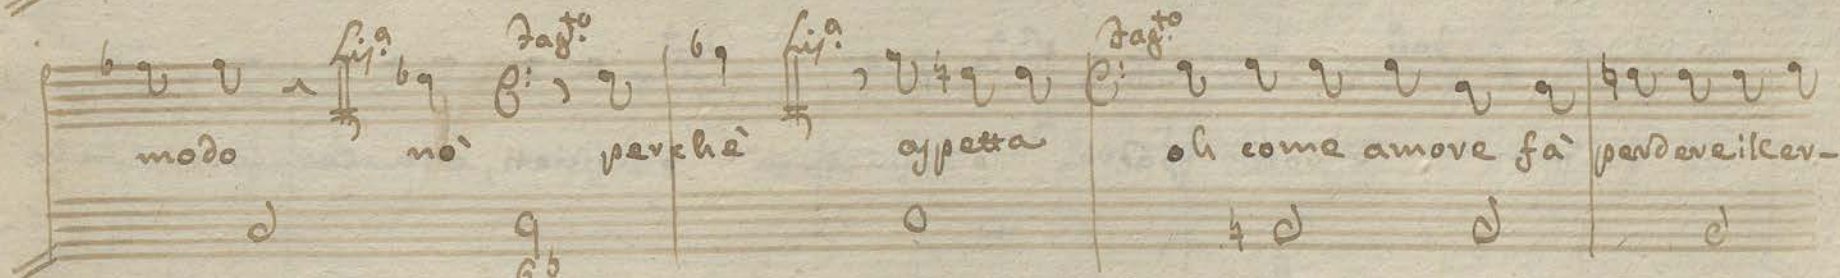 Lis.ª Tag.to Lis.ª Tag.to
modo nò perchè aspetta oh come amore fà perdere il cer-
6 b